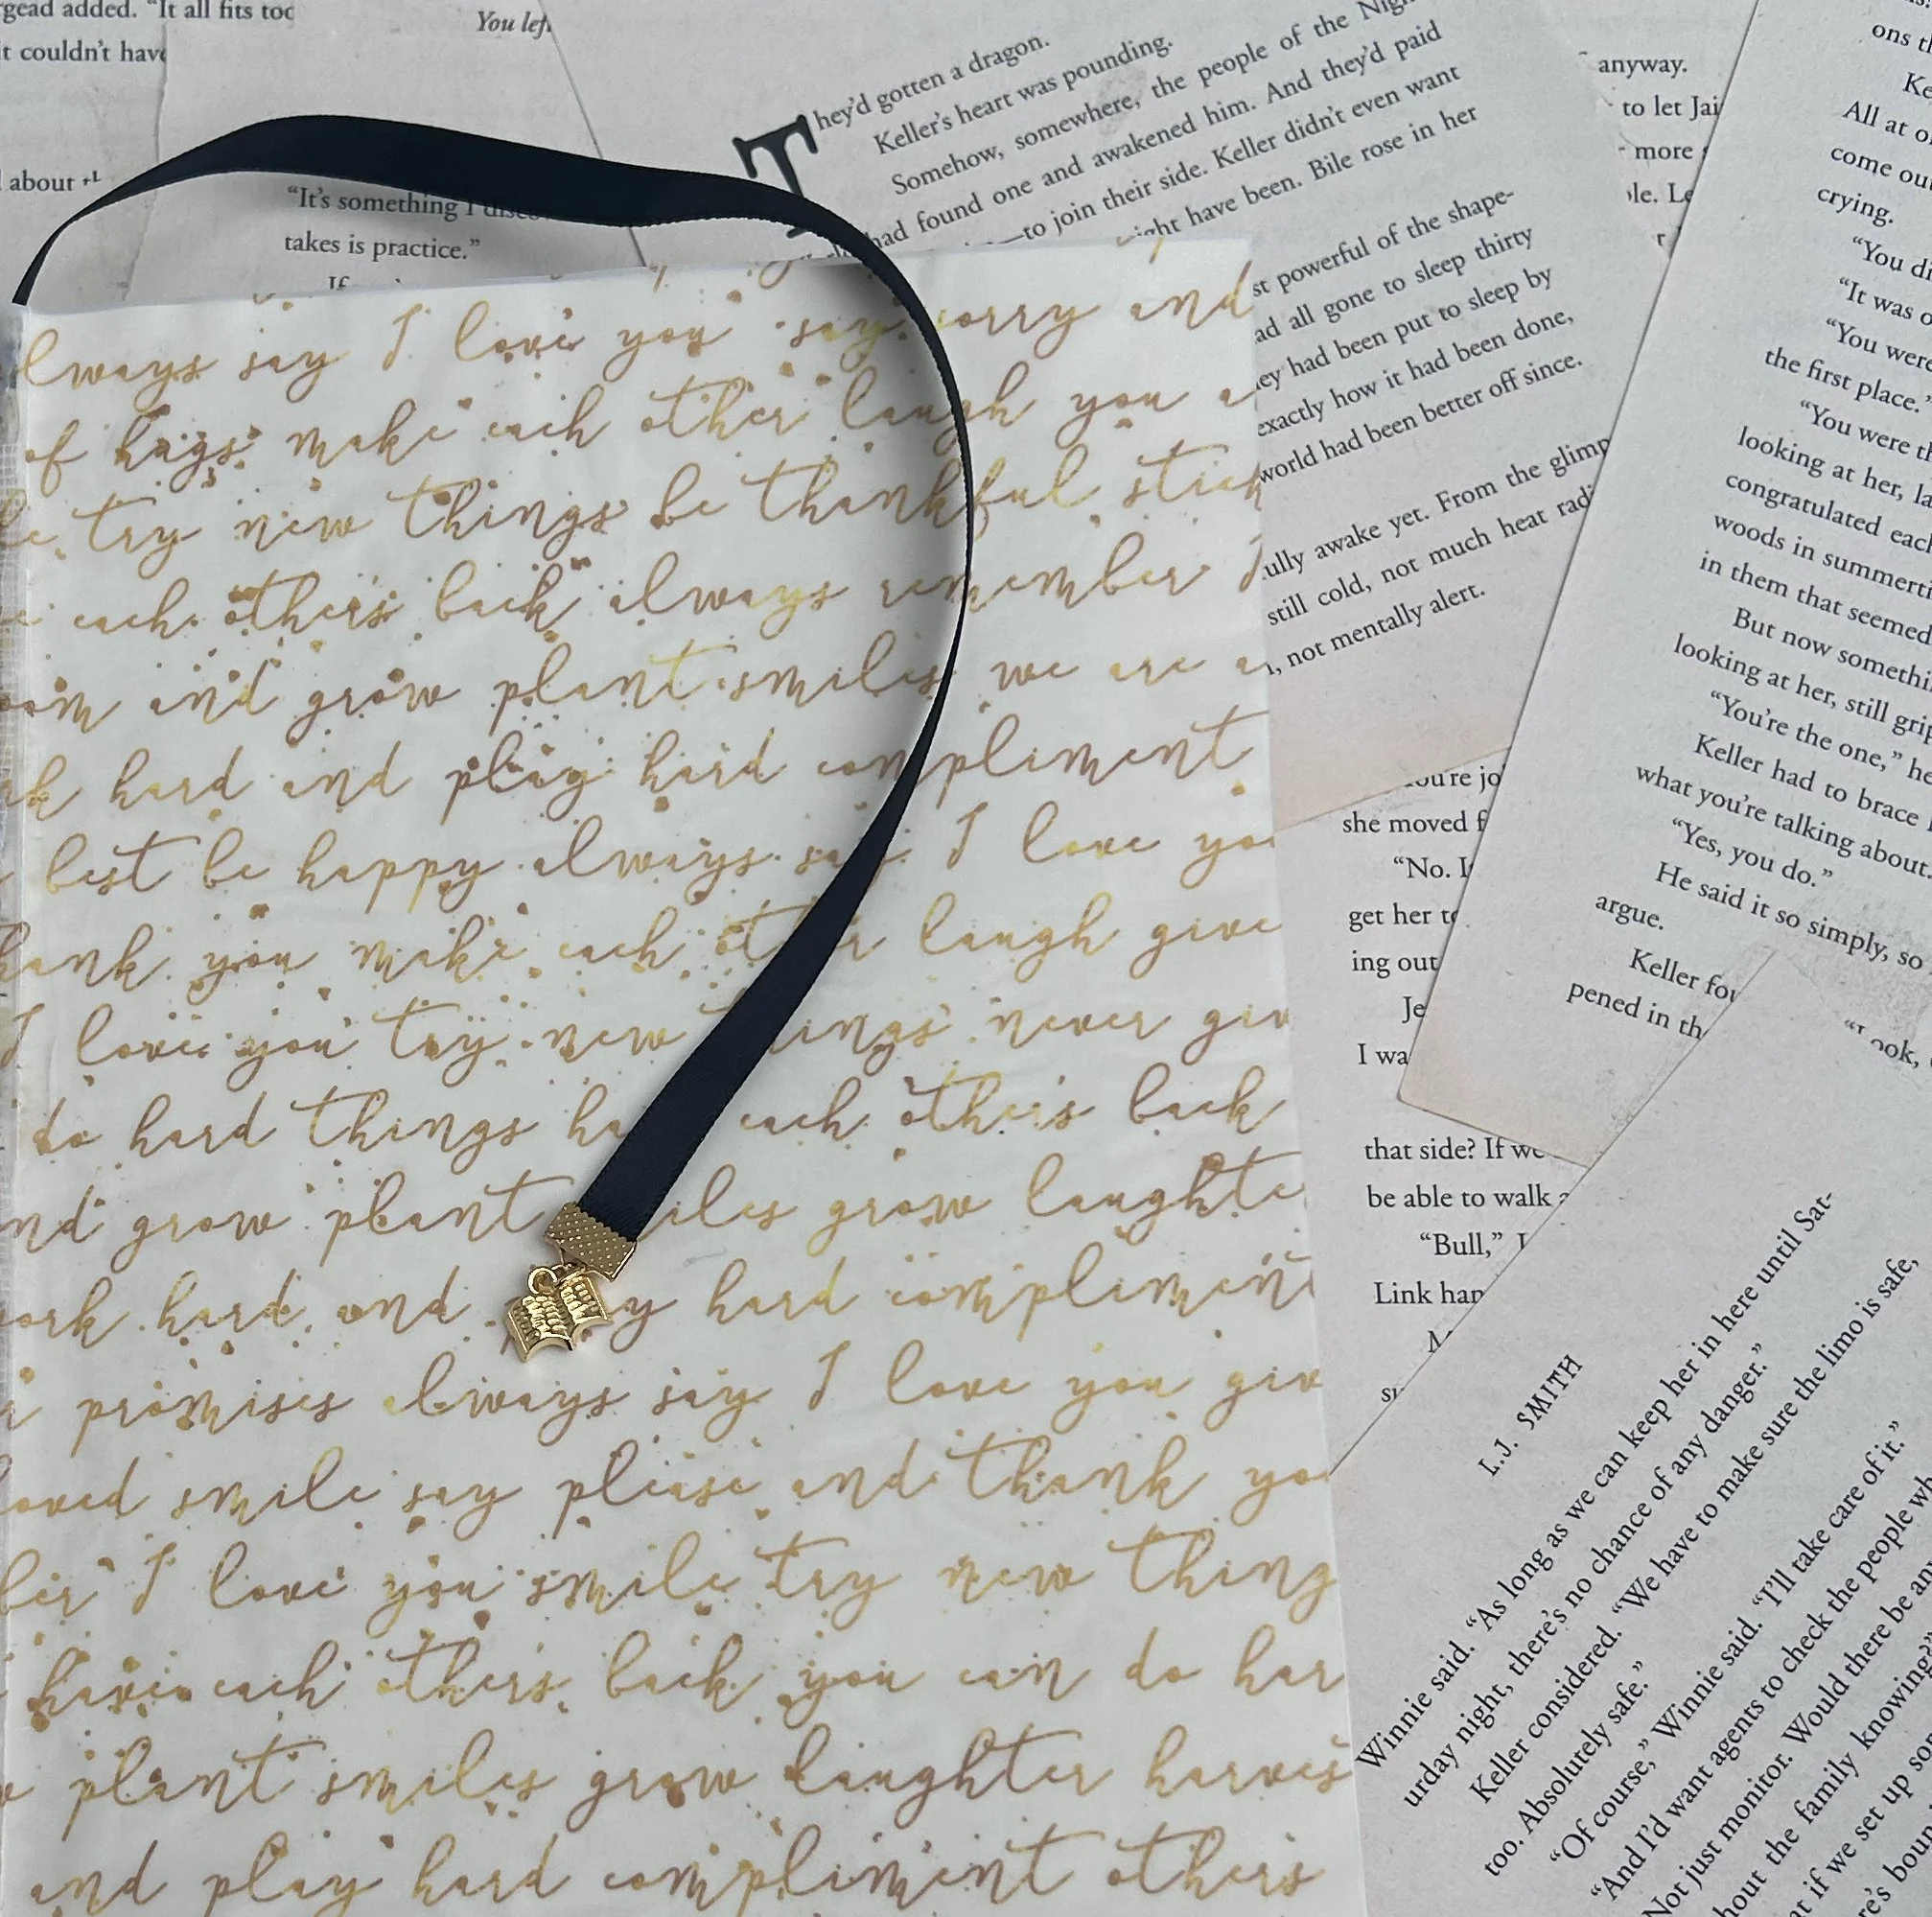 gead added. "It all fits too
it couldn't have
about
You left
"It's something I
takes is practice."
If
They'd gotten a dragon.
Keller's heart was pounding.
Somehow, somewhere, the people of the Nig
had found one and awakened him. And they'd paid
—to join their side. Keller didn't even want
ight have been. Bile rose in her
st powerful of the shape-
ad all gone to sleep thirty
ey had been put to sleep by
exactly how it had been done,
world had been better off since.
ully awake yet. From the glimp
still cold, not much heat radi
, not mentally alert.
anyway.
to let Jai
more
ole. Le
ons
Ke
All at o
come ou
crying.
"You di
"It was o
"You were
the first place."
"You were th
looking at her, la
congratulated each
woods in summerti
in them that seemed
But now somethi
looking at her, still grip
"You're the one," he
Keller had to brace
what you're talking about.
"Yes, you do."
He said it so simply, so
argue.
Keller fou
pened in th
ook,
ou're jo
she moved f
"No. I
get her to
ing out
Je
I wa
that side? If we
be able to walk
"Bull,"
Link han
lways say I love you say sorry and
of hugs make each other laugh you a
try new things be thankful stick
each others back always remember I
oom and grow plant smiles we are a
rk hard and play hard compliment
best be happy always say I love yo
hank you make each other laugh give
I love you try new things never giv
do hard things ha each others back
nd grow plant iles grow laughte
work hard and y hard compliment
promises always say I love you giv
loved smile say please and thank yo
ber I love you smile try new thing
have each others back you can do har
plant smiles grow laughter harves
and play hard compliment others
L.J. SMITH
Winnie said. "As long as we can keep her in here until Sat-
urday night, there's no chance of any danger."
Keller considered. "We have to make sure the limo is safe,
too. Absolutely safe."
"Of course," Winnie said. "I'll take care of it."
"And I'd want agents to check the people wh
Not just monitor. Would there be an
hout the family knowing?"
if we set up so
re's boun